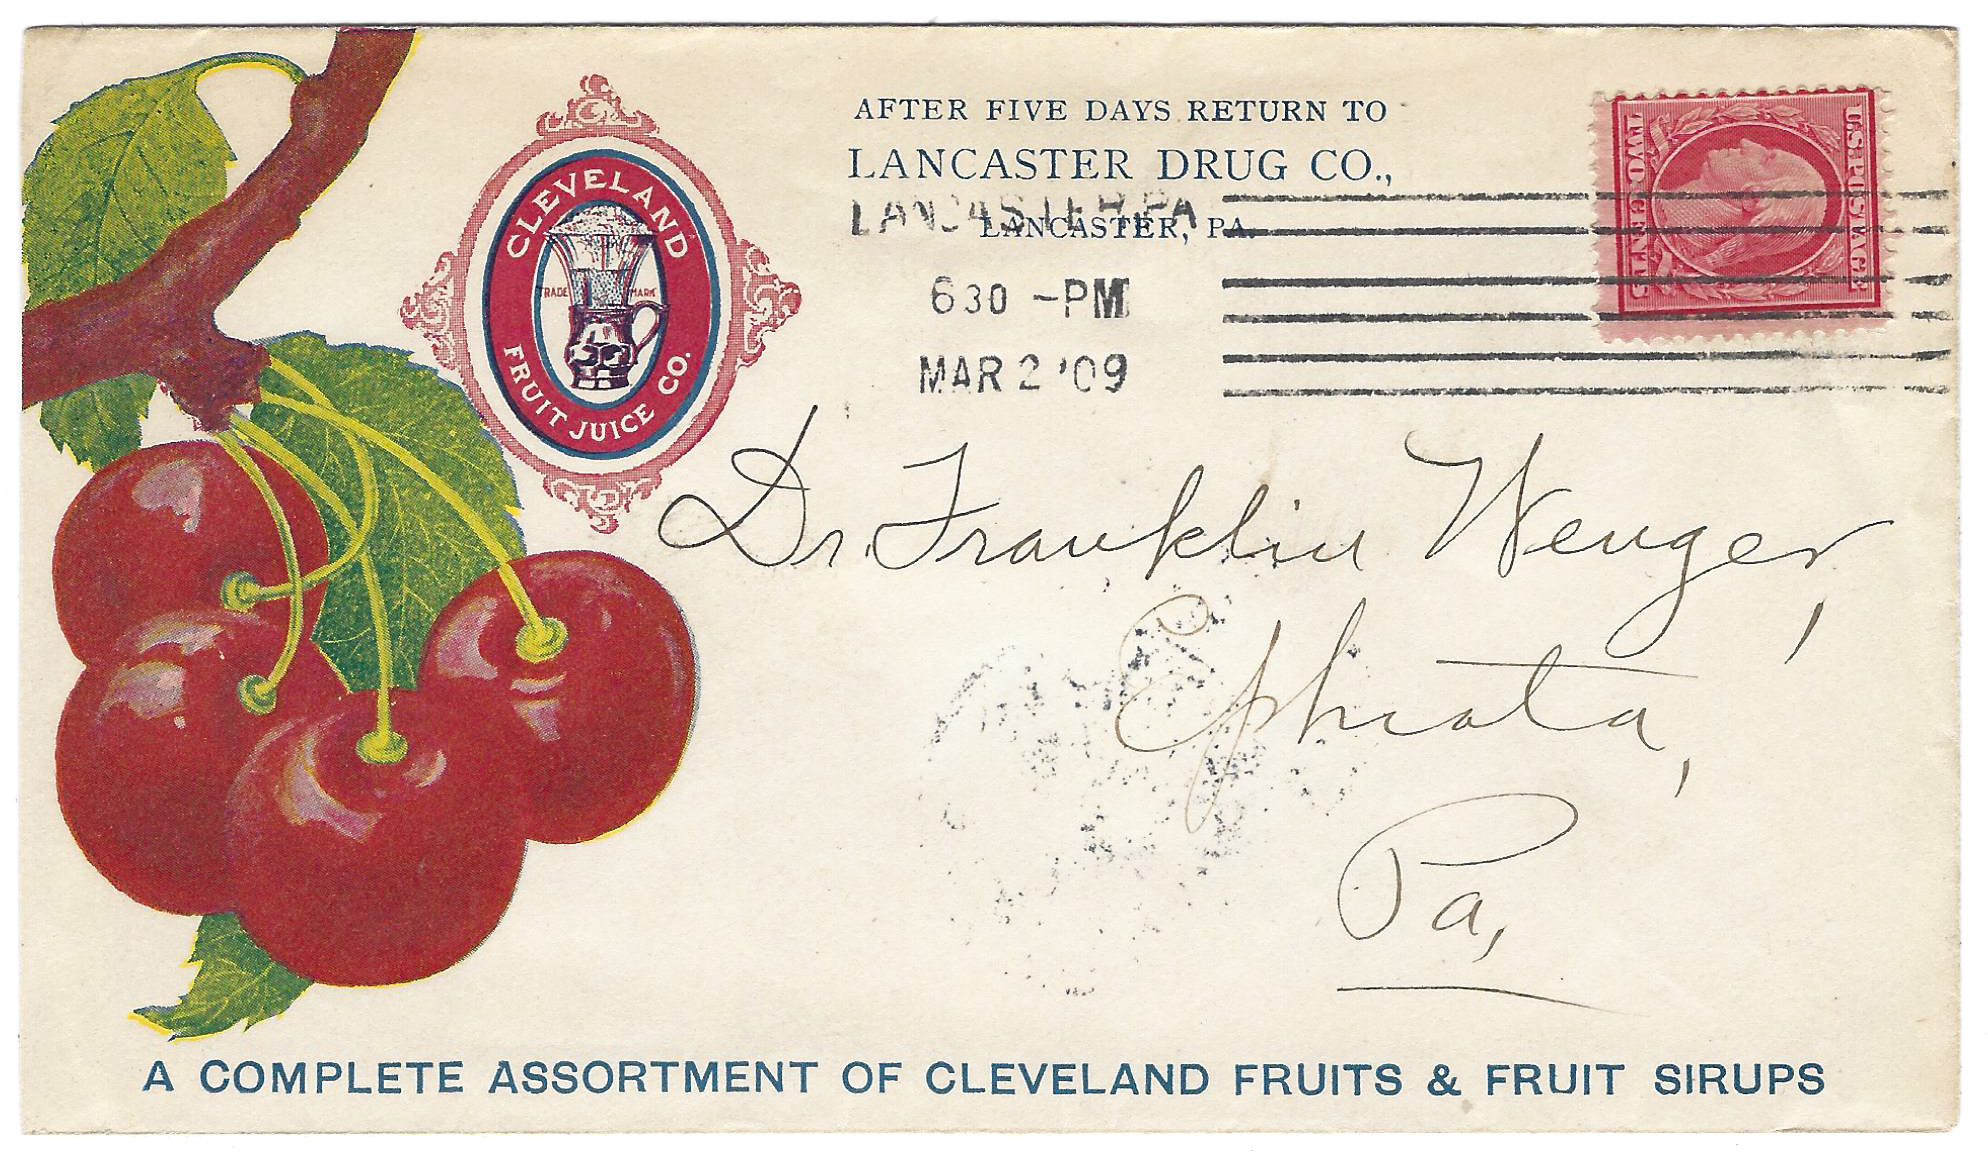 AFTER FIVE DAYS RETURN TO
LANCASTER DRUG CO.,
LANCASTER, PA.
LANCASTER, PA
6 30 - PM
MAR 2 '09
U.S. POSTAGE
TWO CENTS 2
CLEVELAND
TRADE MARK
FRUIT JUICE CO.
Dr. Franklin Wenger,
Ephrata,
Pa,
A COMPLETE ASSORTMENT OF CLEVELAND FRUITS & FRUIT SIRUPS